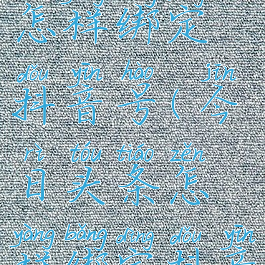 怎样绑定
dǒu yīn hào jīn
抖音号(今
rì tóu tiáo zěn
日头条怎
yàng bǎng dìng dǒu yīn
样绑定抖音